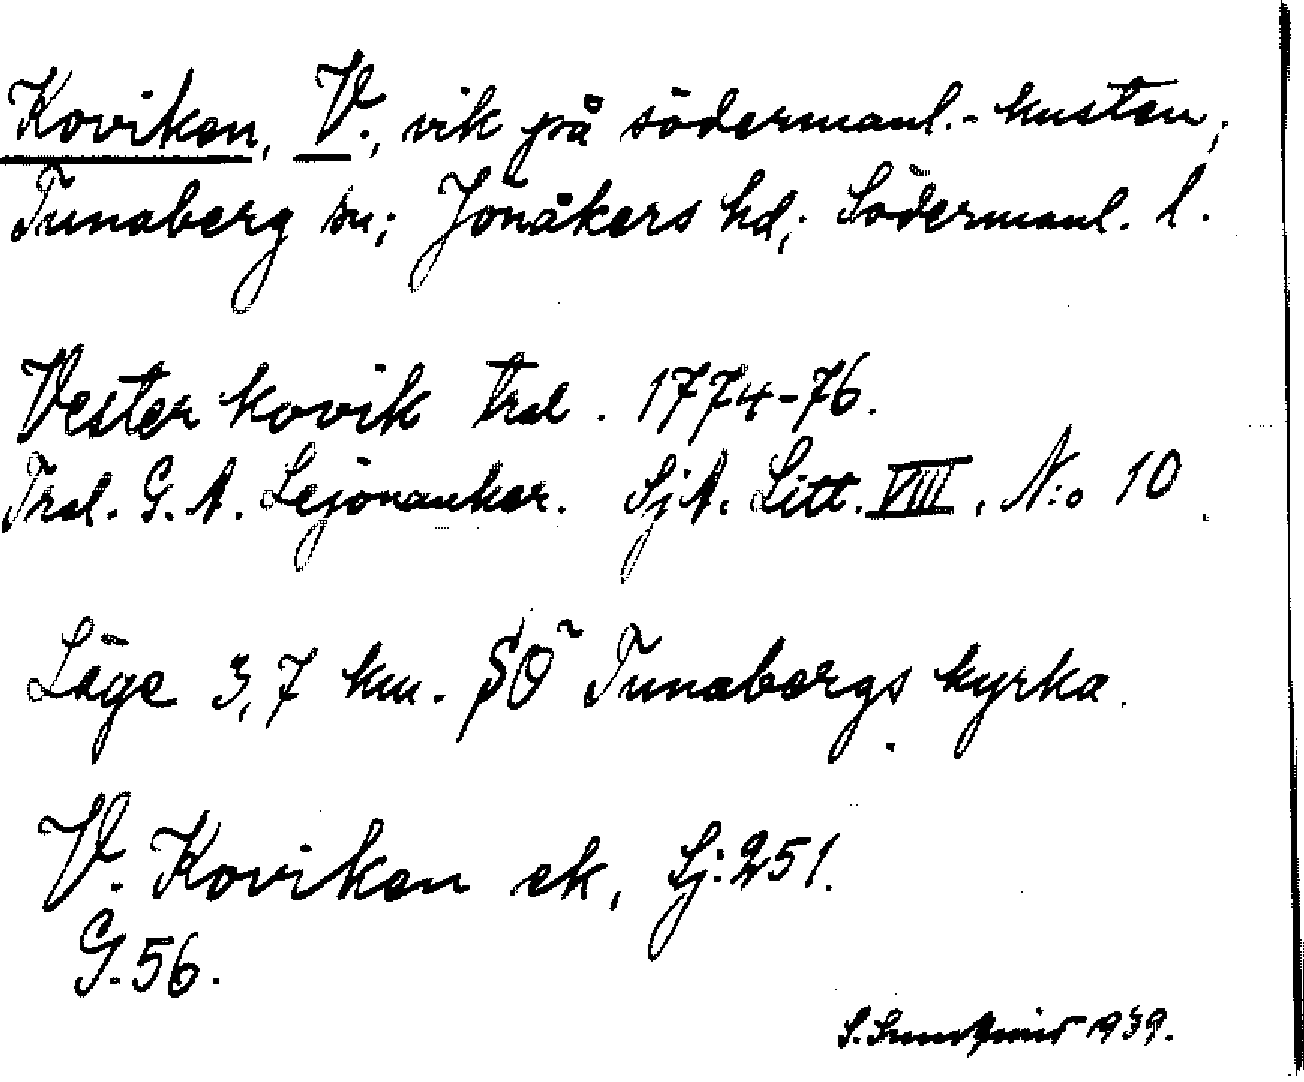 Koviken, V., vik på södermanl.-kusten,
Tunaberg sn; Jönåkers hd; Södermanl. l.
Vester kovik trsl. 1774-76.
Trsl. G. A. Lejonanker. SjA. Litt. VIII, N:o 10
Läge 3,7 km. SÖ Tunabergs kyrka.
V. Koviken ek, Sj:251.
G.56.
S. 1939.